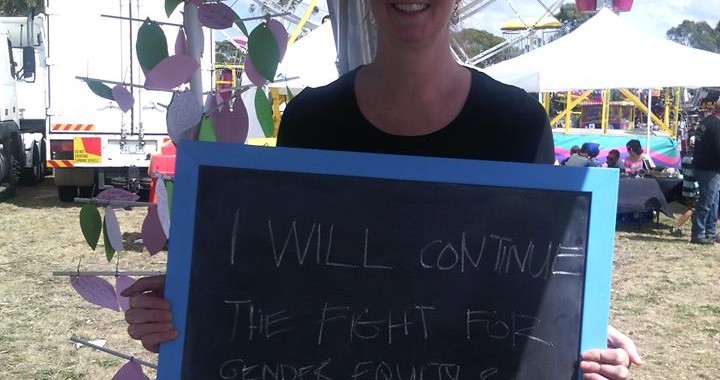 I WILL CONTINUE
THE FIGHT FOR
GENDER EQUITY &